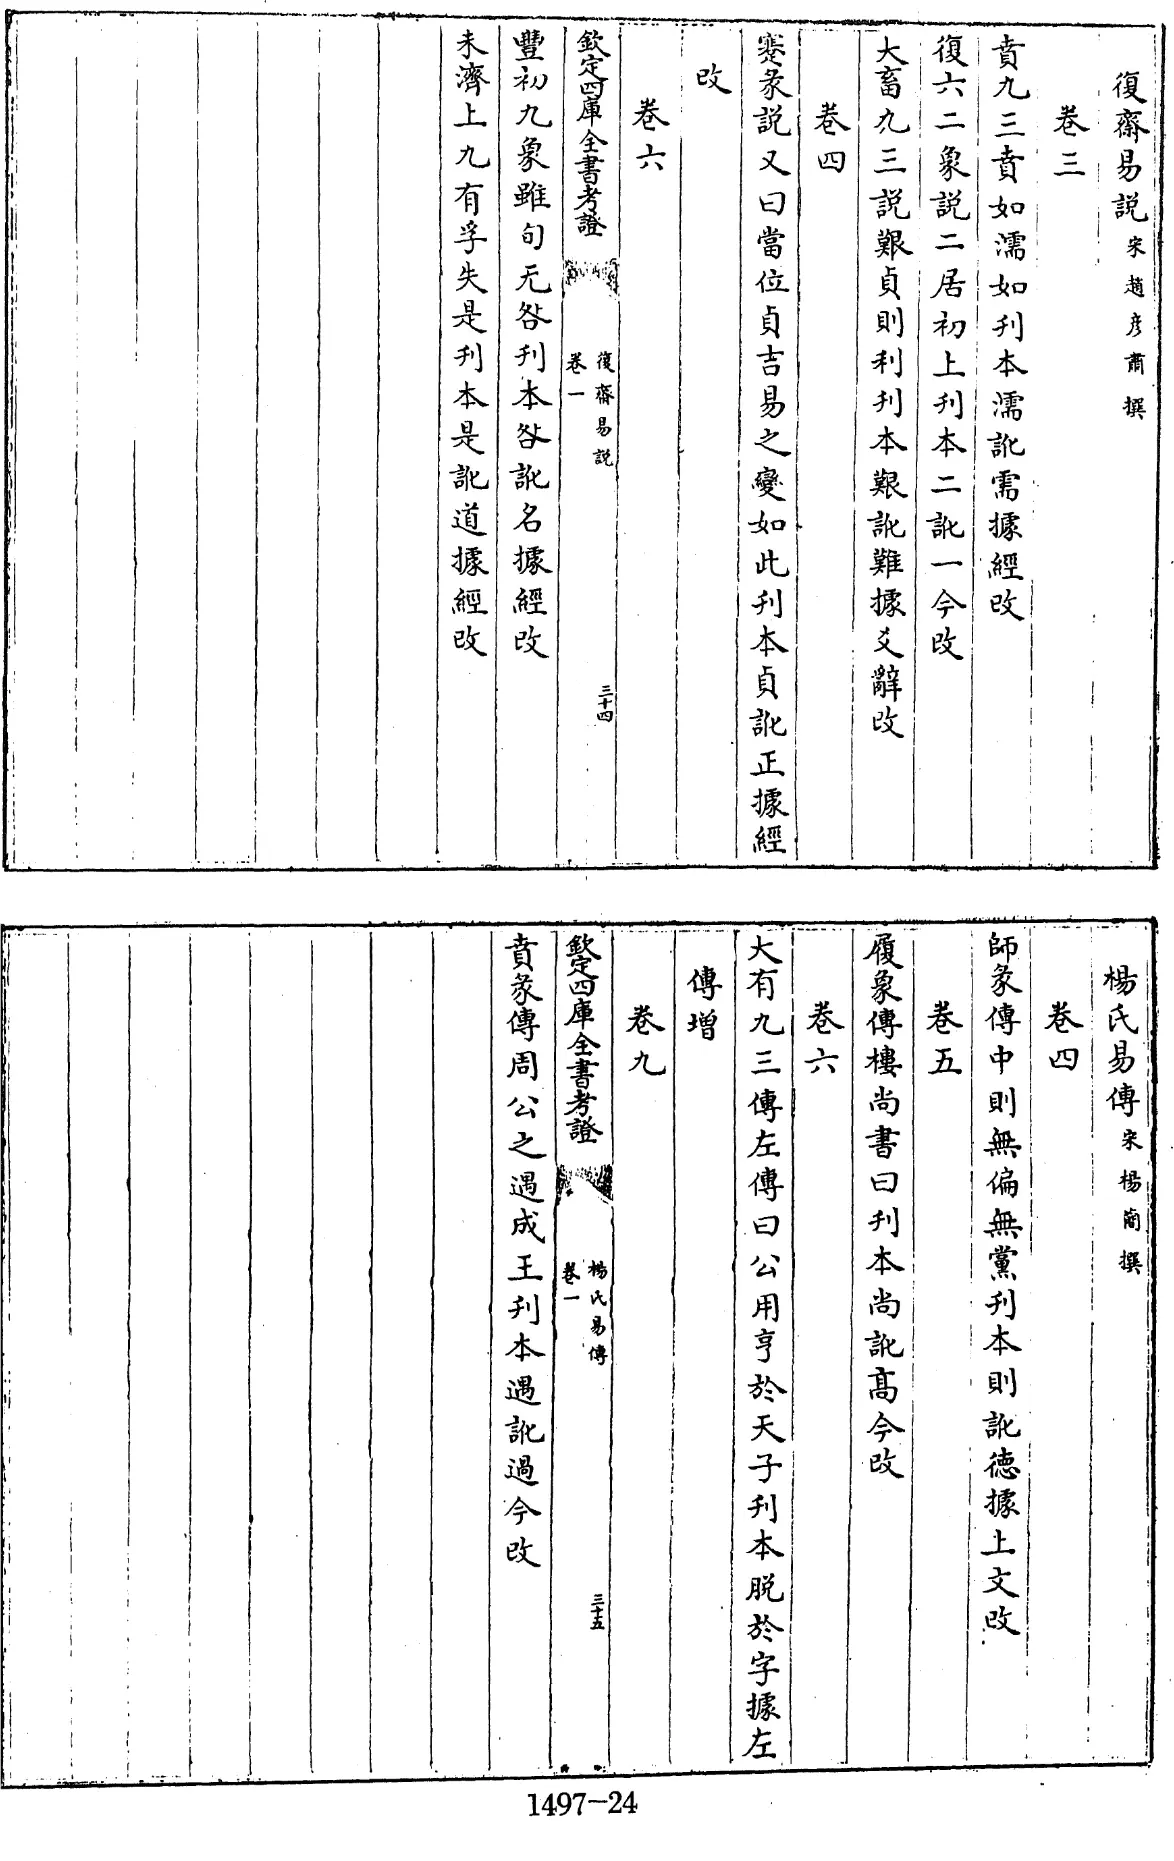 復齋易説宋趙彦肅撰
卷三
賁九三賁如濡如刋本濡訛需據經改
復六二象説二居初上刋本二訛一今改
大畜九三説艱貞則利刋本艱訛難據爻辭改
卷四
蹇彖説又曰當位貞吉易之變如此刋本貞訛正據經
改
卷六
欽定四庫全書考證
復齋易説
卷一
三十四
豐初九象雖旬无咎刋本咎訛名據經改
未濟上九有孚失是刋本是訛道據經改
楊氏易傳宋楊簡撰
卷四
師彖傳中則無偏無黨刋本則訛德據上文改
卷五
履象傳樓尚書曰刋本尚訛高今改
卷六
大有九三傳左傳曰公用亨於天子刋本脱於字據左
傳增
卷九
欽定四庫全書考證
楊氏易傳
卷一
三十五
賁彖傳周公之遇成王刋本遇訛過今改
1497-24